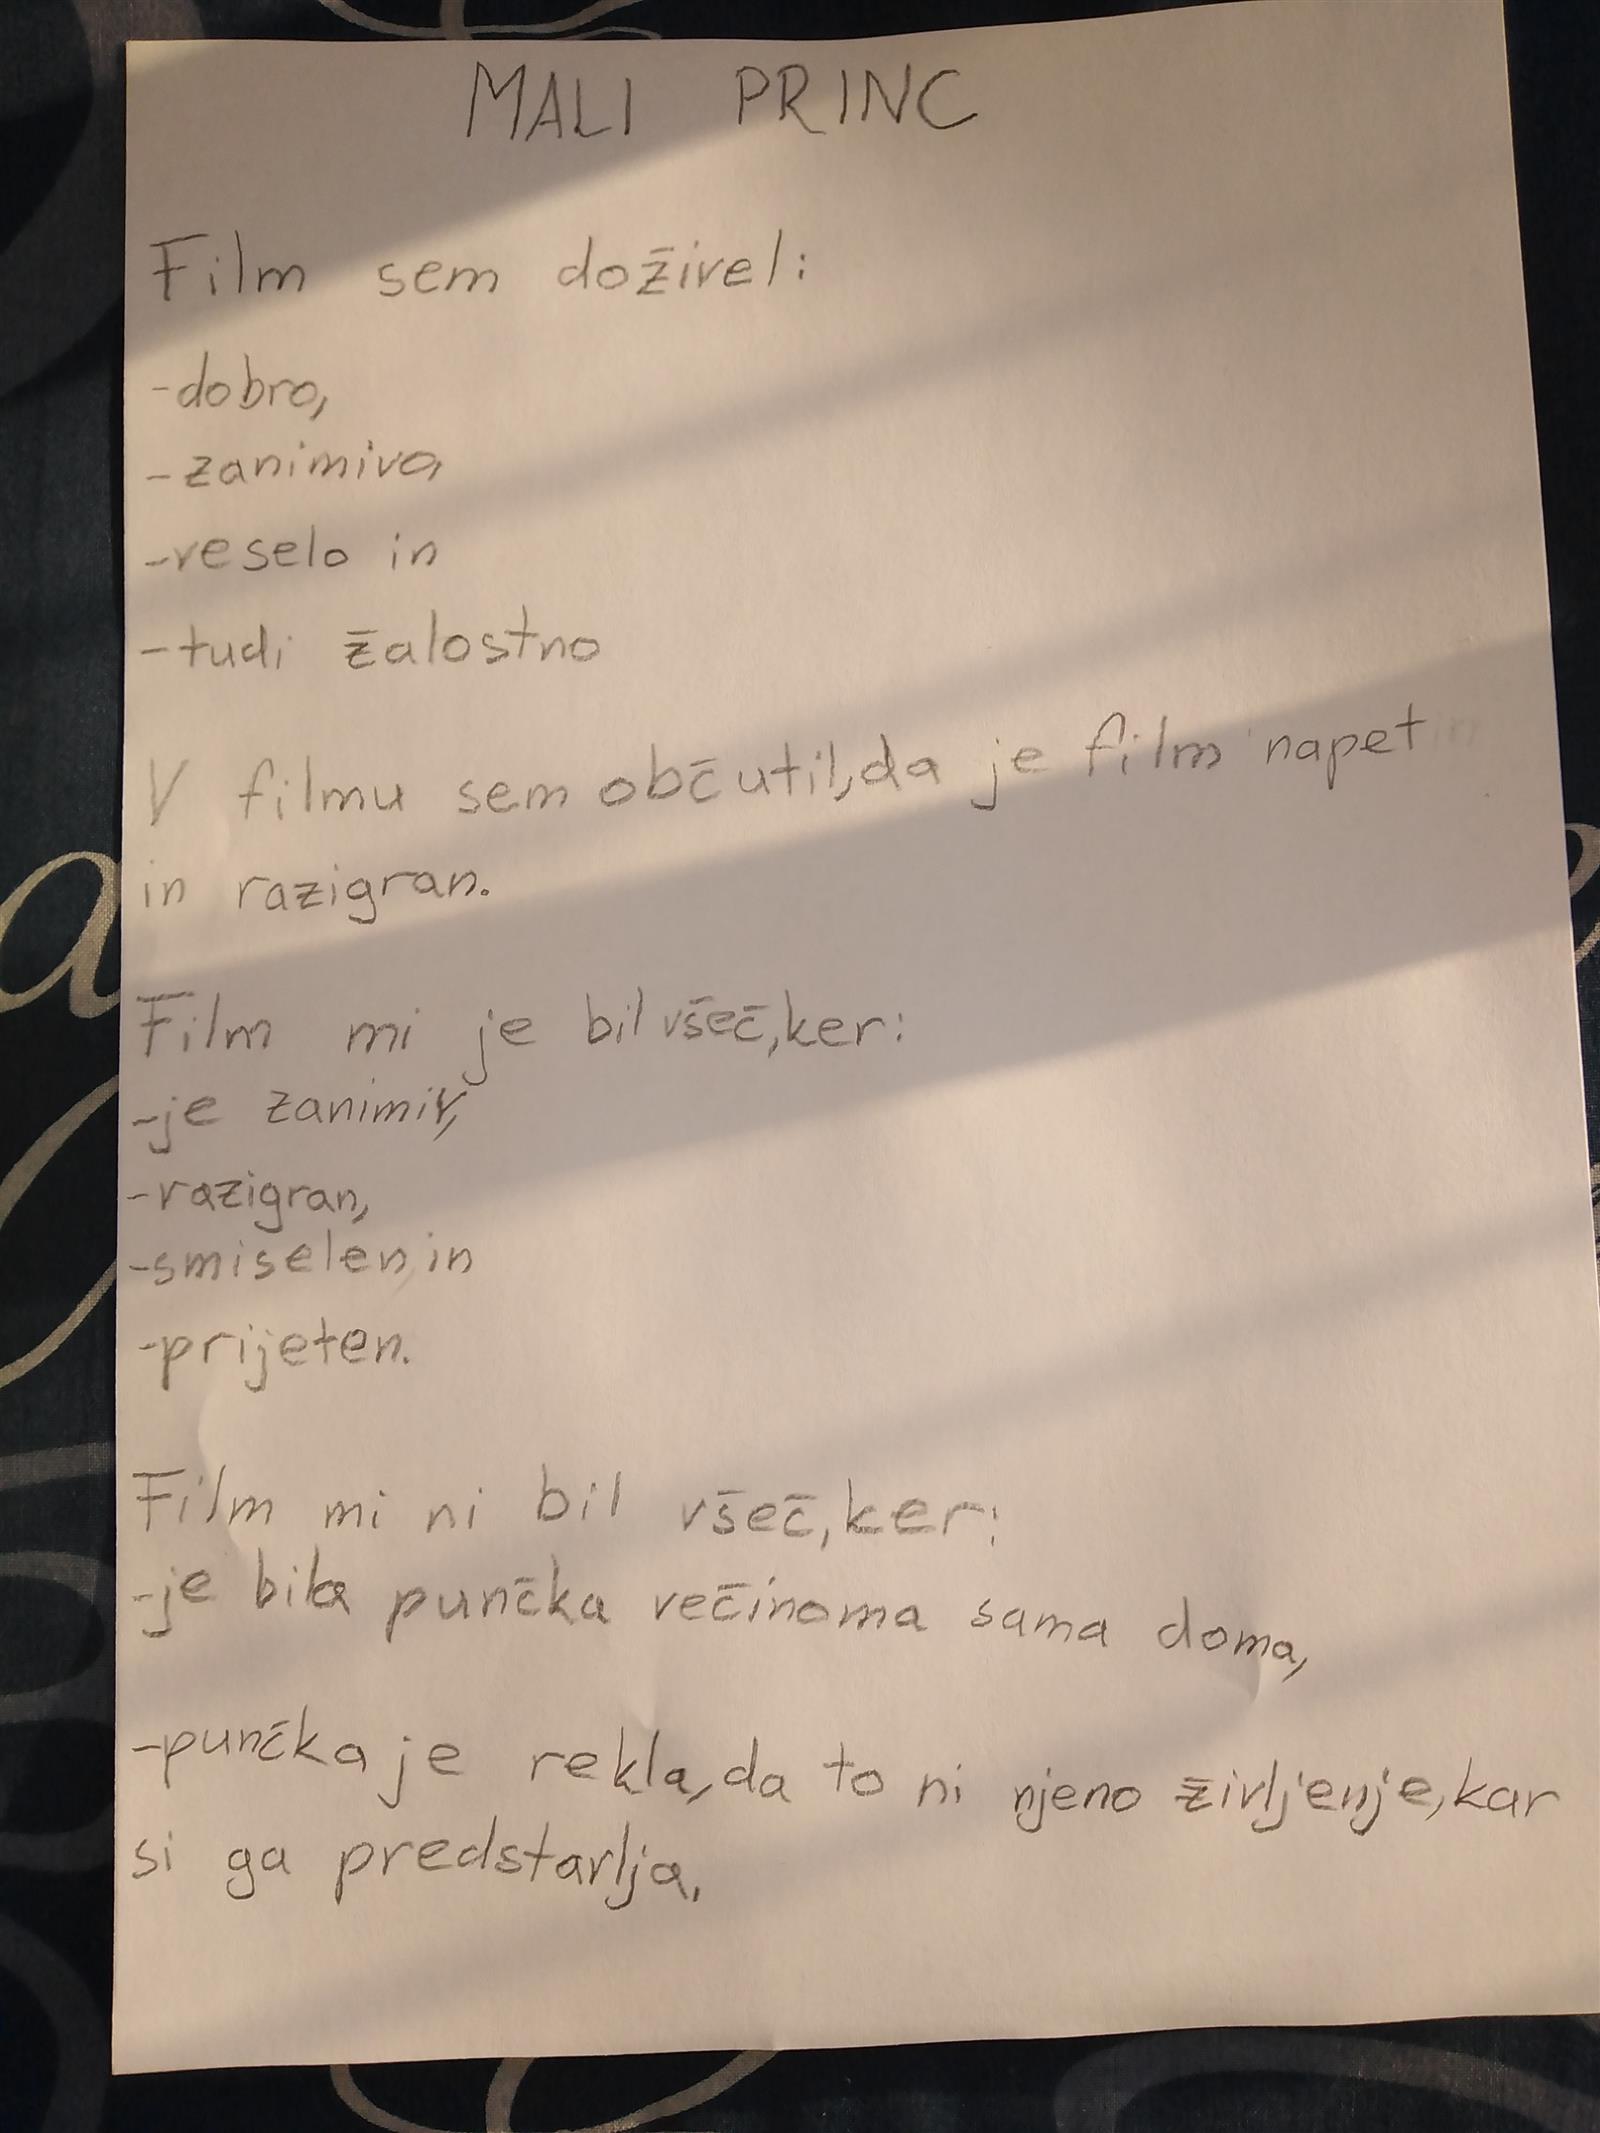 MALI PRINC
Film sem doživel:
-dobro,
-zanimivo,
-veselo in
-tudi žalostno
V filmu sem občutil, da je film napet
in razigran.
Film mi je bil všeč, ker:
-je zanimiv,
-razigran,
-smiselen, in
-prijeten.
Film mi ni bil všeč, ker:
-je bila punčka večinoma sama doma,
-punčka je rekla, da to ni njeno življenje, kar
si ga predstavlja.